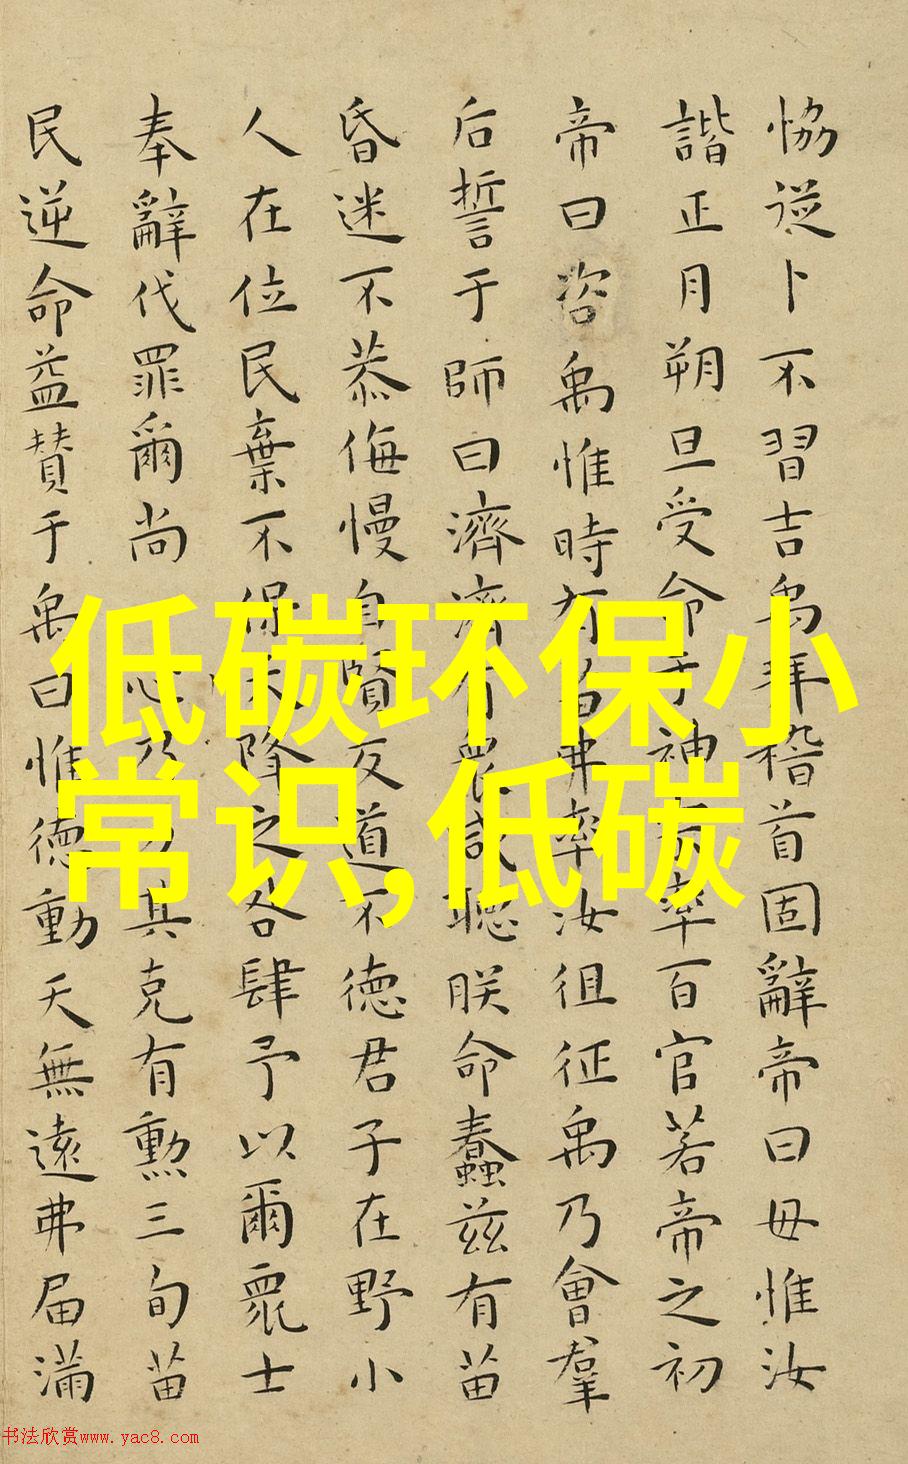 恊從卜不習吉禹拜稽首固辭帝曰毋惟汝
諧正月朔旦受命于神宗率百官若帝之初
帝曰咨禹惟時有苗弗率汝徂征禹乃會羣
后誓于師曰濟濟有衆咸聽朕命蠢兹有苗
昏迷不恭侮慢自賢反道不德君子在野小
人在位民棄不保天降之咎肆予以爾衆士
奉辭伐罪爾尚 心乃力其克有勲三旬苗
民逆命益贊于禹曰惟德動天無遠弗届滿
低碳环保小
常识,低碳
书法欣赏www.yac8.com